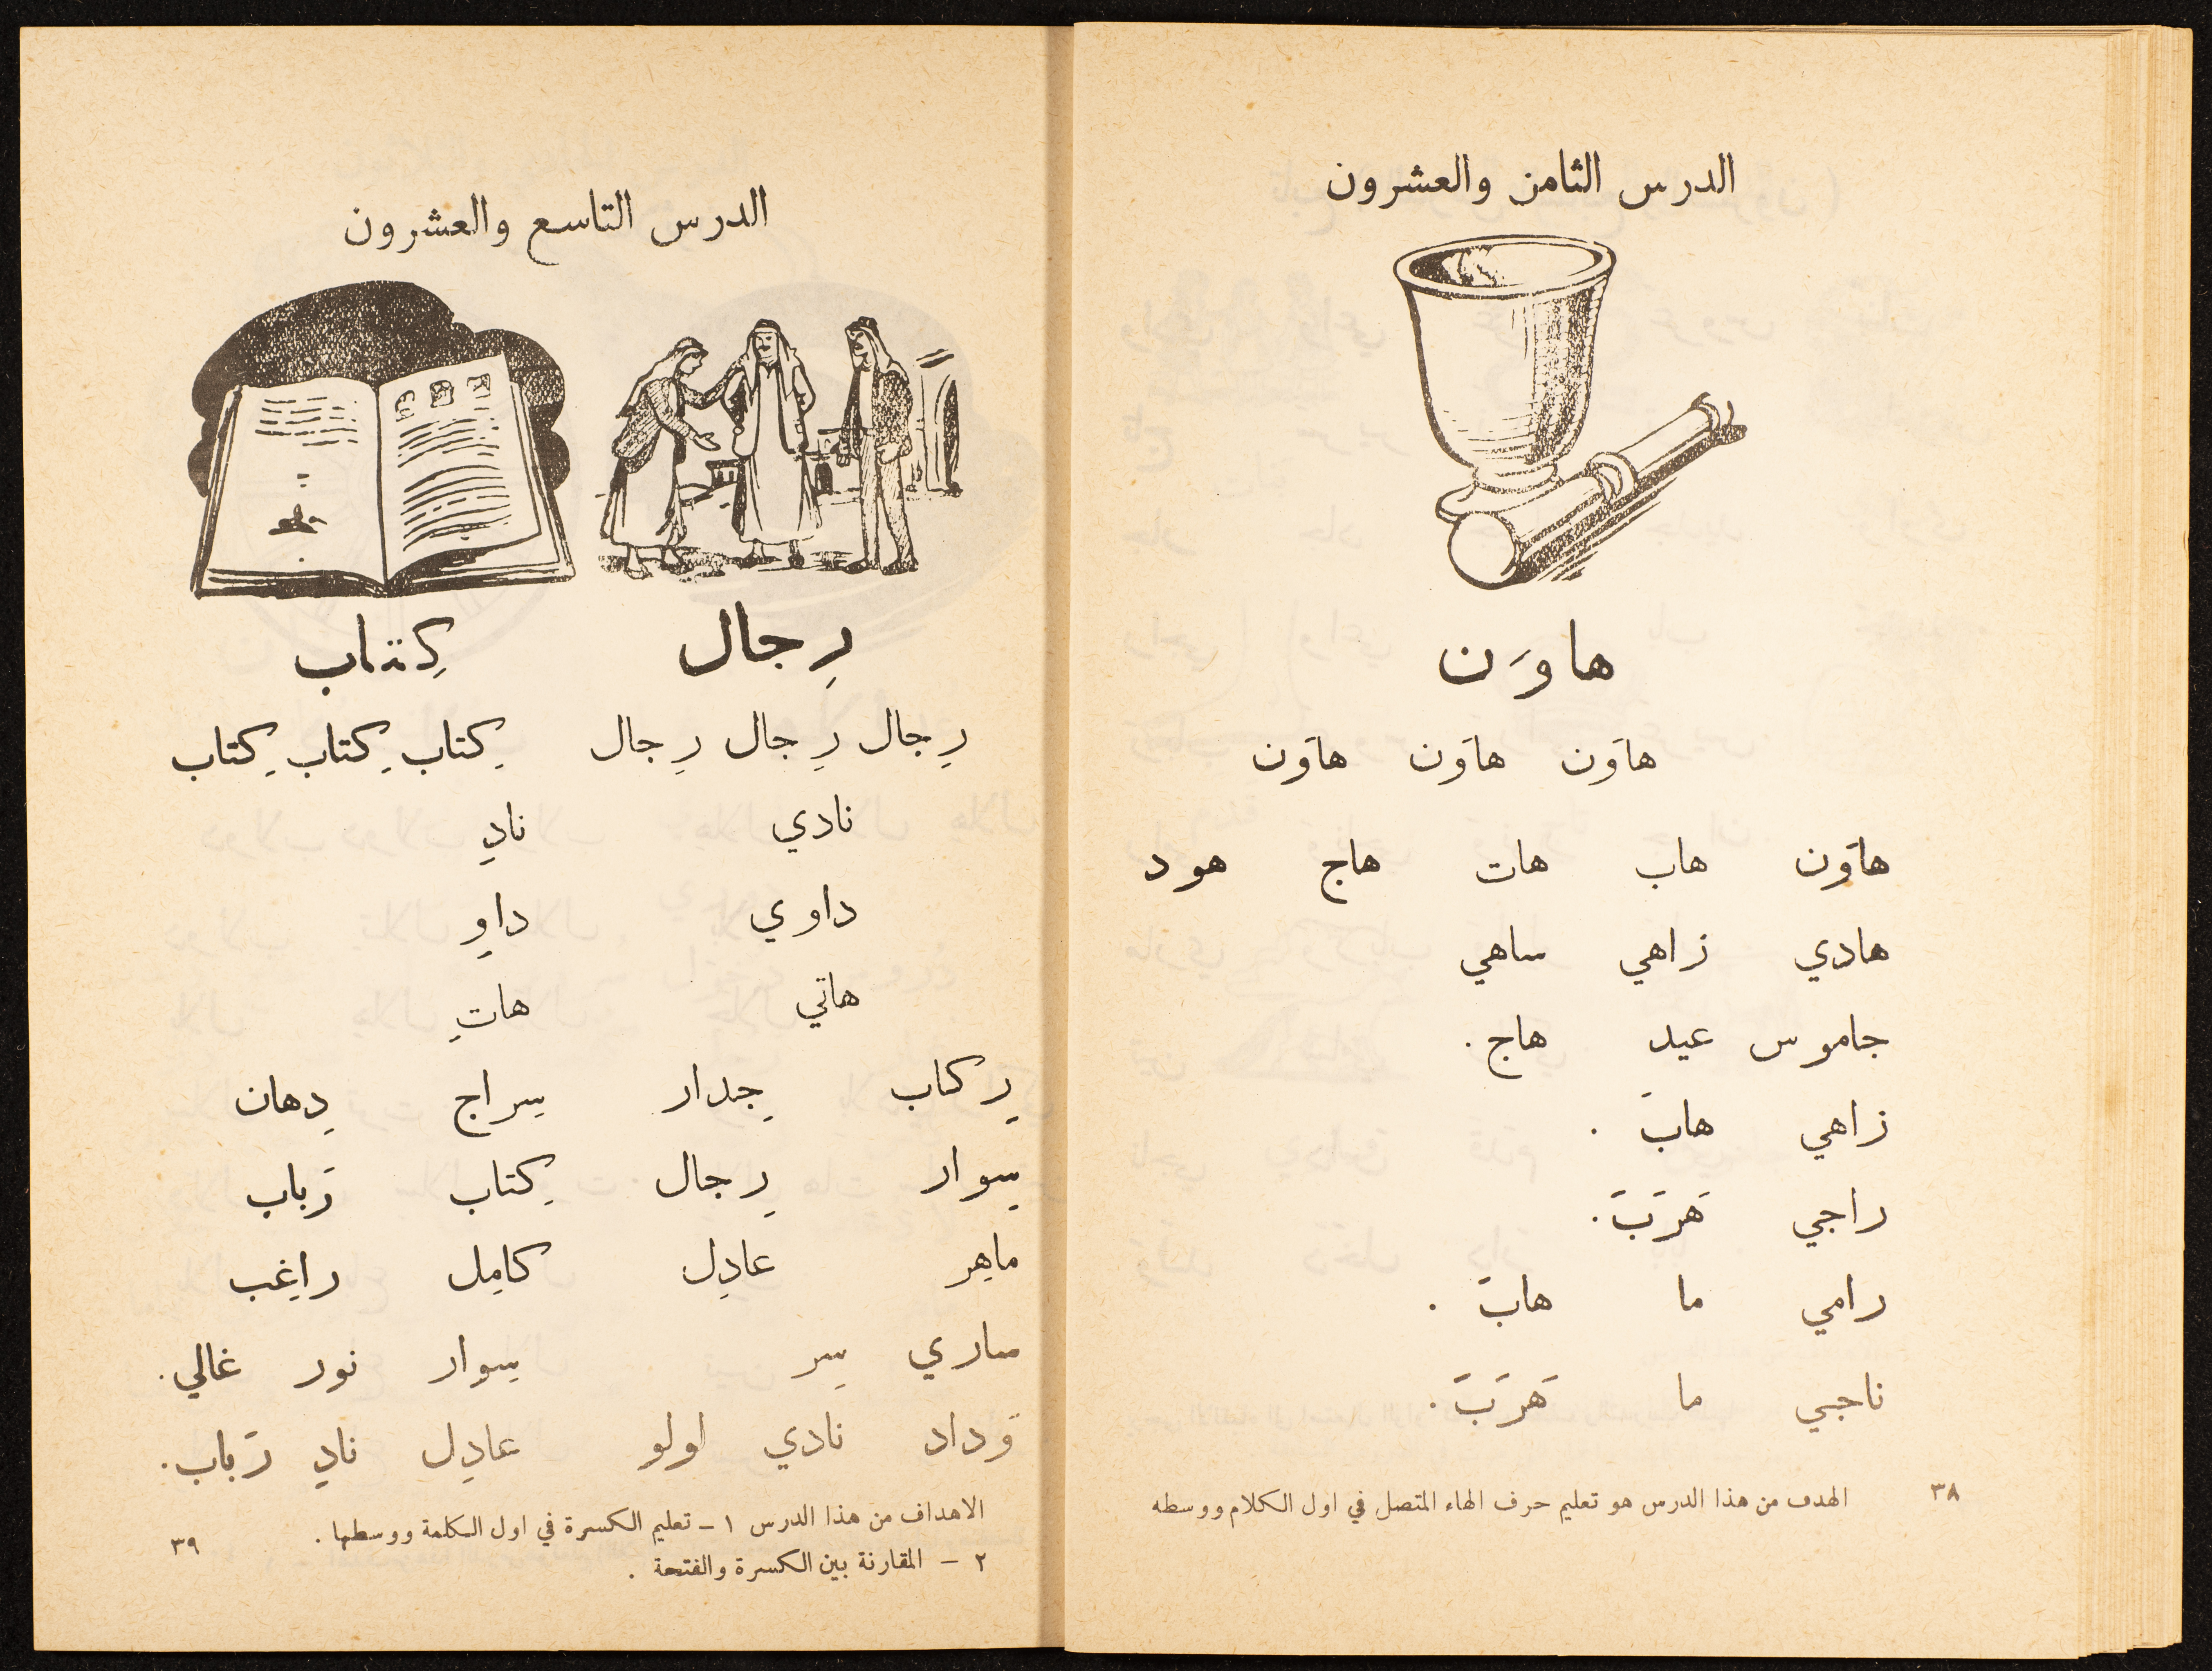 الدرس الثامن والعشرون
هاوَن
هاوَن هاوَن هاوَن
هاوَن هاب هات هاج هود
هادي زاهي ساهي
جاموس عيد هاج .
زاهي هابَ .
راجي هَرَبَ .
رامي ما هابَ .
ناجي ما هَرَبَ .
الهدف من هذا الدرس هو تعليم حرف الهاء المتصل في اول الكلام ووسطه
٣٨
الدرس التاسع والعشرون
رِجال كِتاب
رِجال رِجال رِجال كِتاب كِتاب كِتاب
نادي نادِ
داوي داوِ
هاتي هاتِ
رِكاب جِدار سِراج دِهان
سِوار رِجال كِتاب رَباب
ماهِر عادِل كامِل راغِب
ساري سِر سِوار نور غالي .
وَداد نادي لولو عادِل نادِ رَباب .
الاهداف من هذا الدرس ١ - تعليم الكسرة في اول الكلمة ووسطها .
٢ - المقارنة بين الكسرة والفتحة .
٣٩